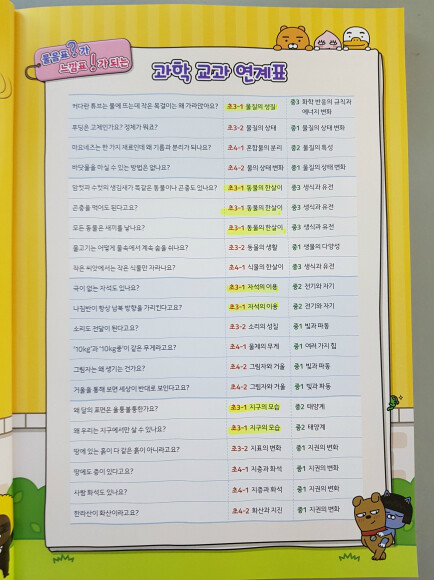 물음표?가
느낌표!가 되는
과학 교과 연계표
커다란 튜브는 물에 뜨는데 작은 목걸이는 왜 가라앉아요? 초3-1 물질의 성질 중3 화학 반응의 규칙과
에너지 변화
푸딩은 고체인가요? 정체가 뭐죠? 초3-2 물질의 상태 중1 물질의 상태 변화
마요네즈는 한 가지 재료인데 왜 기름과 분리가 되나요? 초4-1 혼합물의 분리 중2 물질의 특성
바닷물을 마실 수 있는 방법은 없나요? 초4-2 물의 상태 변화 중1 물질의 상태 변화
암컷과 수컷의 생김새가 똑같은 동물이나 곤충도 있나요? 초3-1 동물의 한살이 중3 생식과 유전
곤충을 먹어도 된다고요? 초3-1 동물의 한살이 중3 생식과 유전
모든 동물은 새끼를 낳나요? 초3-1 동물의 한살이 중3 생식과 유전
물고기는 어떻게 물속에서 계속 숨을 쉬나요? 초3-2 동물의 생활 중1 생물의 다양성
작은 씨앗에서는 작은 식물만 자라나요? 초4-1 식물의 한살이 중3 생식과 유전
극이 없는 자석도 있나요? 초3-1 자석의 이용 중2 전기와 자기
나침반이 항상 남북 방향을 가리킨다고요? 초3-1 자석의 이용 중2 전기와 자기
소리도 전달이 된다고요? 초3-2 소리의 성질 중1 빛과 파동
'10kg'과 '10kg중'이 같은 무게라고요? 초4-1 물체의 무게 중1 여러 가지 힘
그림자는 왜 생기는 건가요? 초4-2 그림자와 거울 중1 빛과 파동
거울을 통해 보면 세상이 반대로 보인다고요? 초4-2 그림자와 거울 중1 빛과 파동
왜 달의 표면은 울퉁불퉁한가요? 초3-1 지구의 모습 중2 태양계
왜 우리는 지구에서만 살 수 있나요? 초3-1 지구의 모습 중2 태양계
땅에 있는 흙이 다 같은 흙이 아니라고요? 초3-2 지표의 변화 중1 지권의 변화
땅에도 층이 있다고요? 초4-1 지층과 화석 중1 지권의 변화
사람 화석도 있나요? 초4-1 지층과 화석 중1 지권의 변화
한라산이 화산이라고요? 초4-2 화산과 지진 중1 지권의 변화